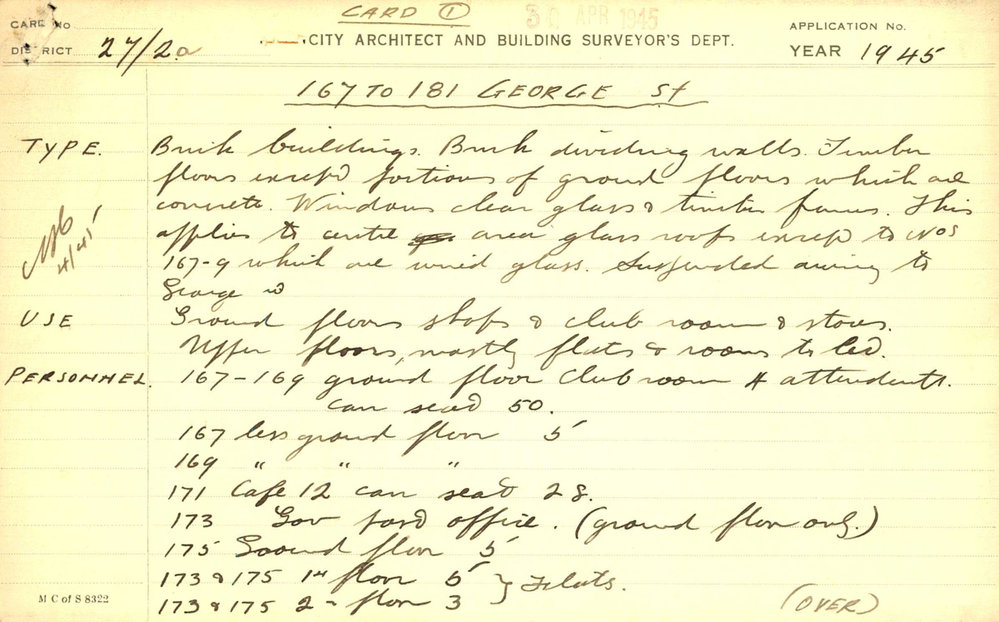 CARD ①
30 APR 1945
CARD No
DISTRICT 27/2a
CITY ARCHITECT AND BUILDING SURVEYOR'S DEPT.
APPLICATION No.
YEAR 1945
167 TO 181 GEORGE St
TYPE. Brick buildings. Brick dividing walls. Timber
floors except portions of ground floors which are
concrete. Windows clear glass & timber frames. This
applies to centre area glass roofs except to Nos
167-9 which are wired glass. Suspended awning to
George
4/45
USE Ground floors shops & club room & stores.
Upper floors, mostly flats & rooms to let.
PERSONNEL. 167-169 ground floor Club room 4 attendents.
can seat 50.
167 less ground floor 5
169 " " "
171 Cafe 12 can seat 28.
173 Gov office. (ground floor only.)
175 Ground floor 5
173 & 175 1st floor 5 } Flats.
173 & 175 2- floor 3
M C of S 8322
(OVER)